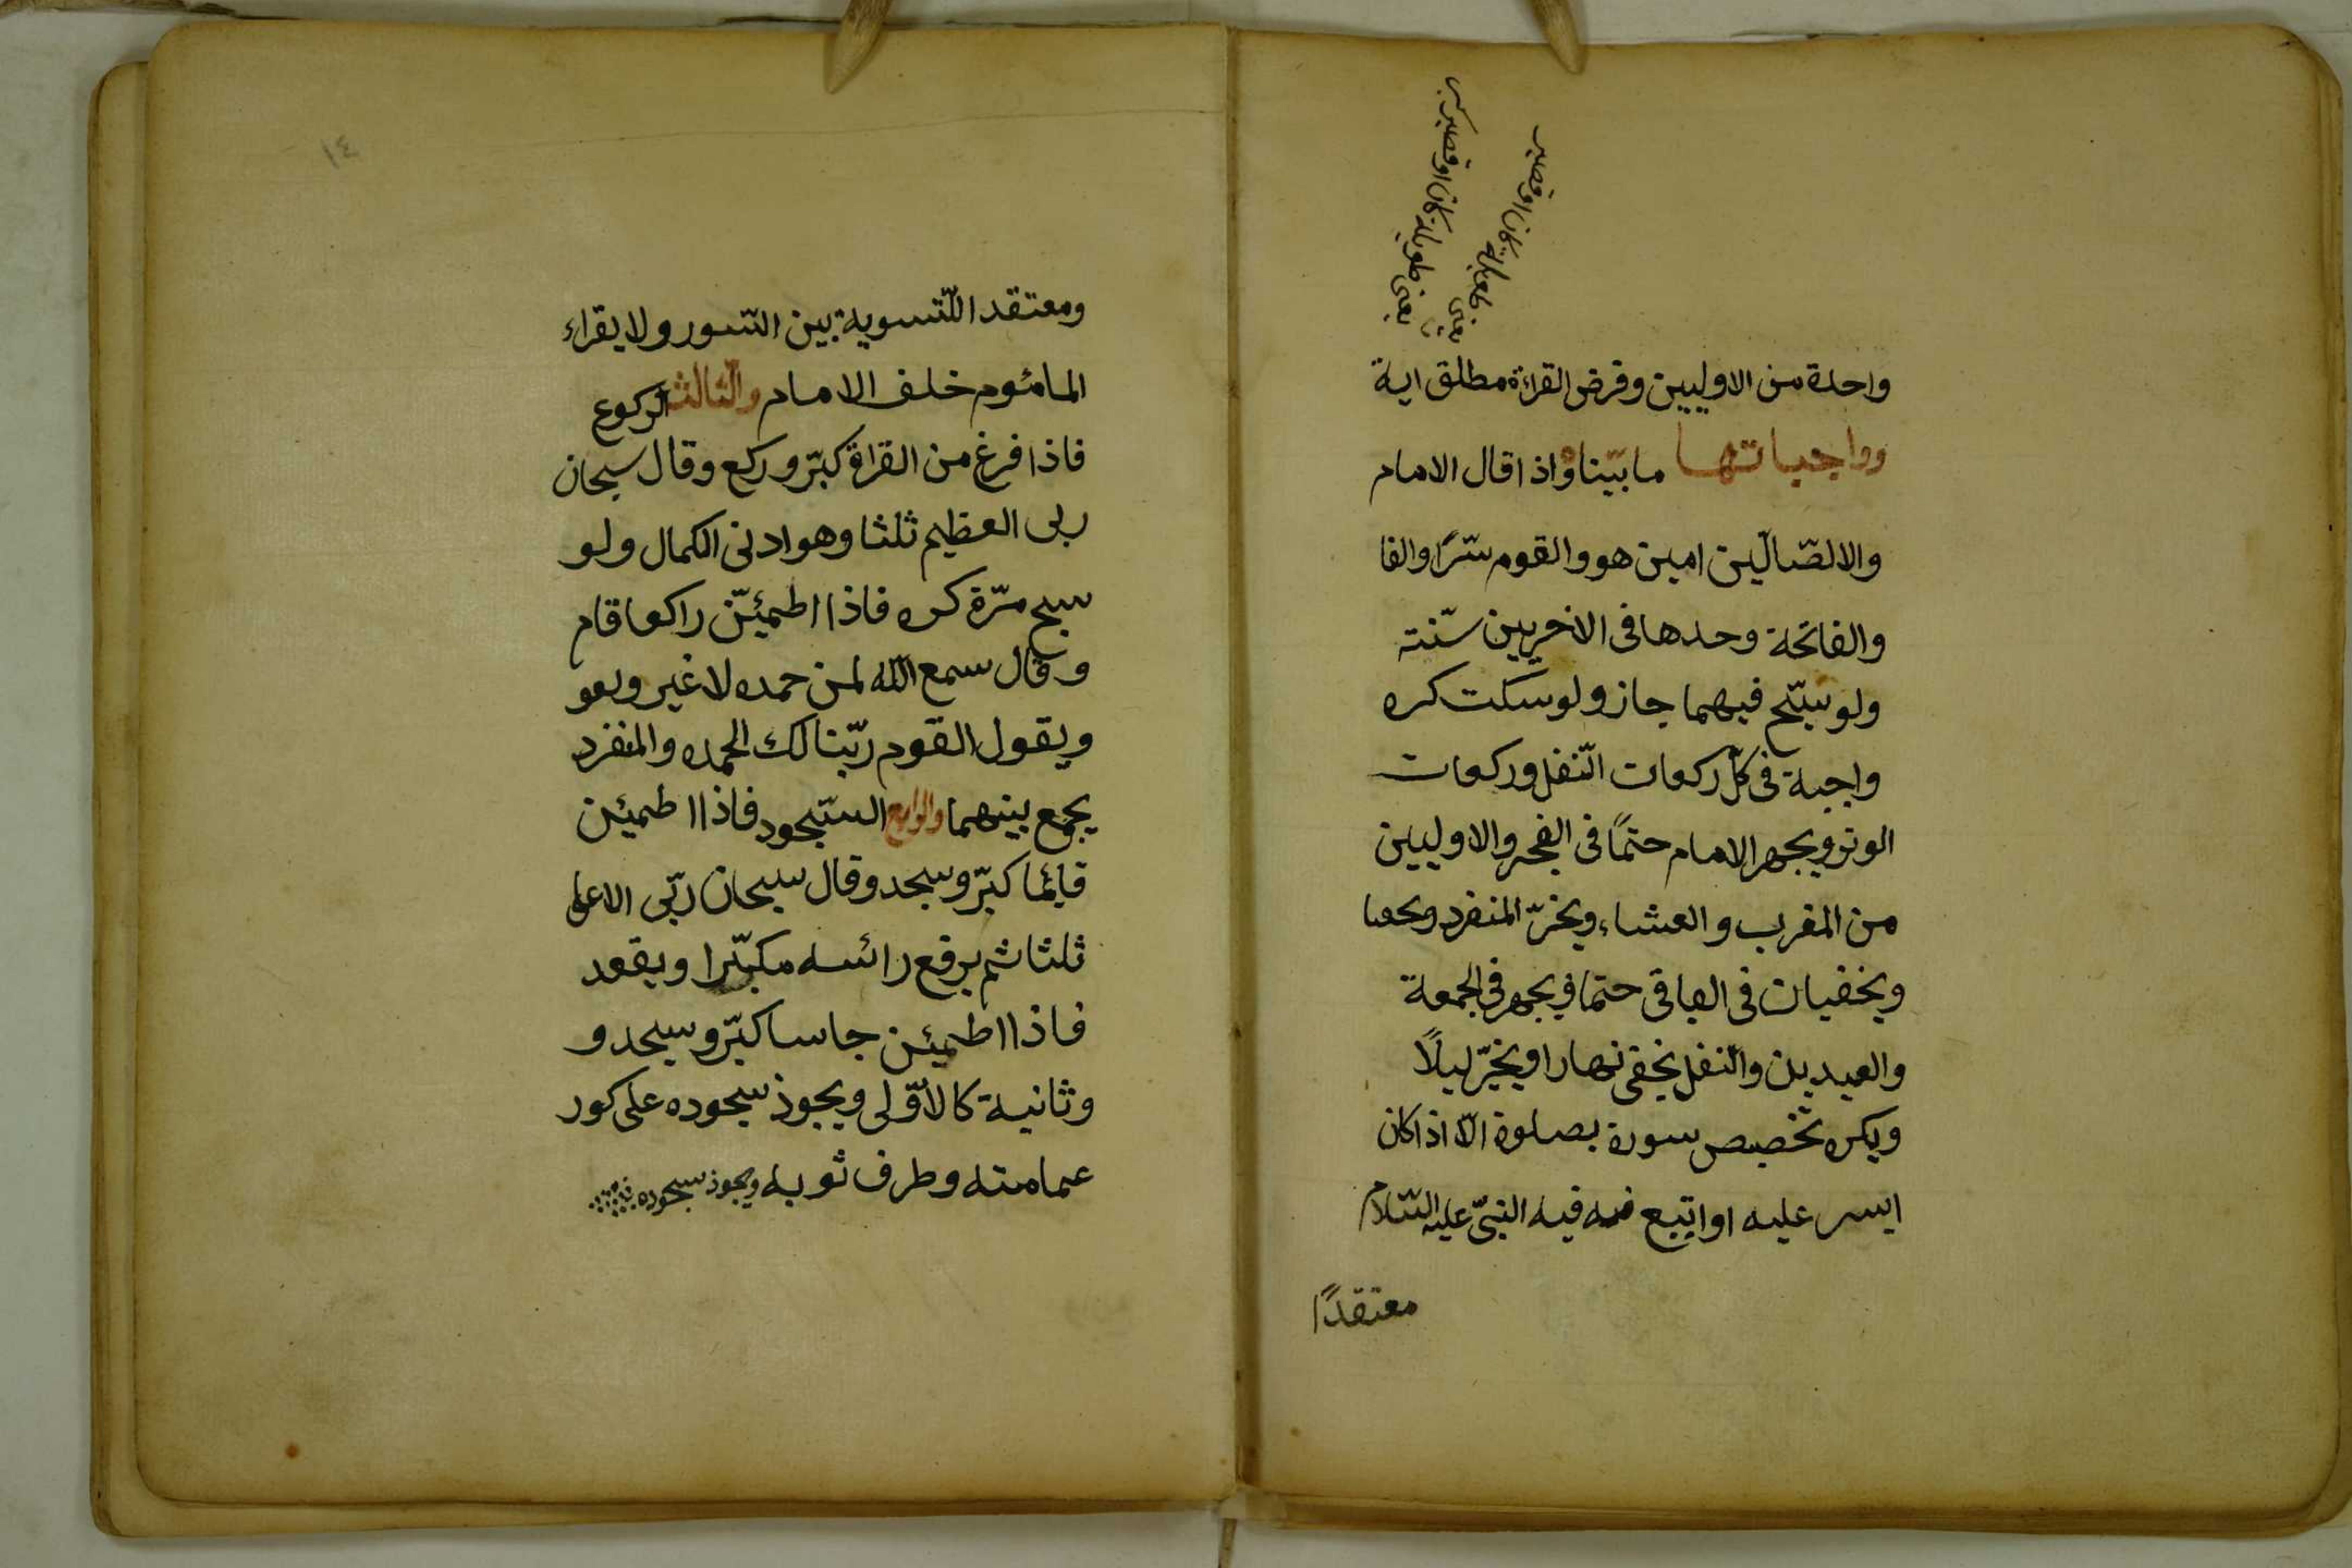 يعنى طويلة كان او قصير
يعنى طويلة كان او قصيرة
واحدة من الاوليين وفرض القراءة مطلق اية
وواجباتها ما بيّناه واذا قال الامام
والالضّالّين امين هو والقوم سّرًا والفا
والفاتحة وحدها فى الاخريين سّنته
ولو سبّح فيهما جاز ولو سكت كره
واجبة فى كلّ ركعات النّفل وركعات
الوتر ويجهر الامام حتمًا فى الفجر والاوليين
من المغرب والعشاء ويخرّ المنفرد
ويخفيان فى الباقى حتما ويجهر فى الجمعة
والعيدين والنّفل يخفى نهارا ويخيّر ليلًا
ويكره تخصيص سورة بصلوة الّا اذا كان
ايسر عليه او اتبع فيه النبىّ عليه السّلام
معتقدًا
١٤
ومعتقد اللّتسوية بين السّور ولا يقراء
المامئوم خلف الامام والثّالث الركوع
فاذا فرغ من القراة كبّر وركع وقال سبحان
ربى العظيم ثلثا وهو ادنى الكمال ولو
سبح مرّة كره فاذا اطمئيّن راكعا قام
وقال سمع اللّه لمن حمده لا غير ويعو
ويقول القوم ربّنا لك الحمده والمنفرد
يجمع بينهما والرابع السّجود فاذا اطمئين
قائما كبّر وسجد وقال سبحان ربّى الاعلى
ثلثا ثم يرفع رائسه مكبّرا ويقعد
فاذا اطمئين جاسا كبّر وسجد و
وثانية كالأوّلى ويجوذ سجوده على كور
عمامته وطرف ثوبه ويجوذ سجوده